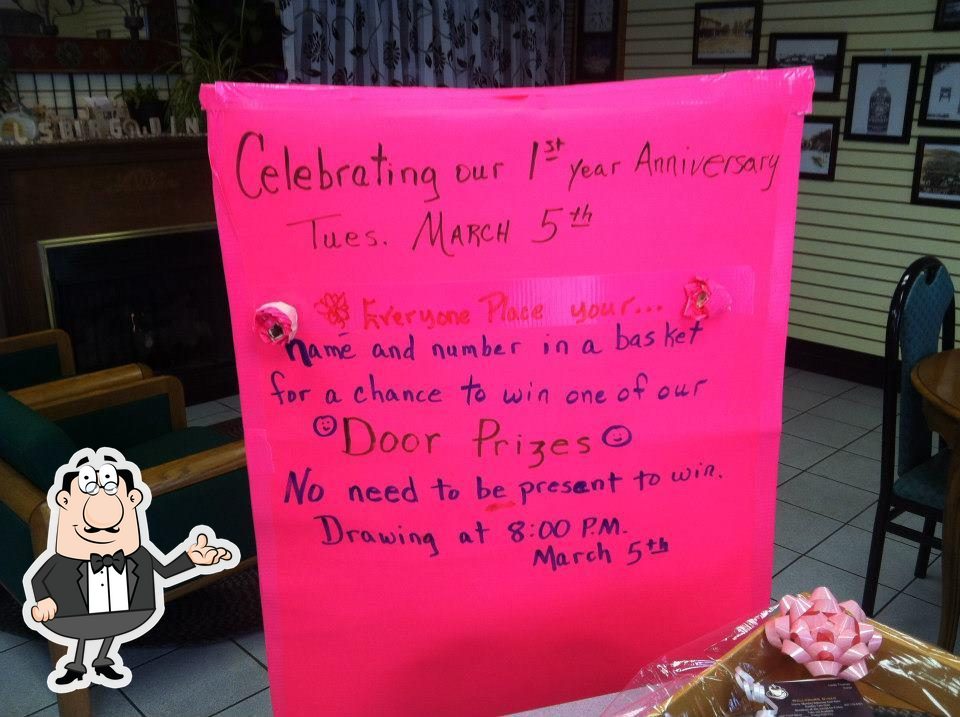 Celebrating our 1st year Anniversary
Tues. MARCH 5th
Everyone Place your...
name and number in a basket
for a chance to win one of our
Door Prizes
No need to be present to win.
Drawing at 8:00 P.M.
March 5th